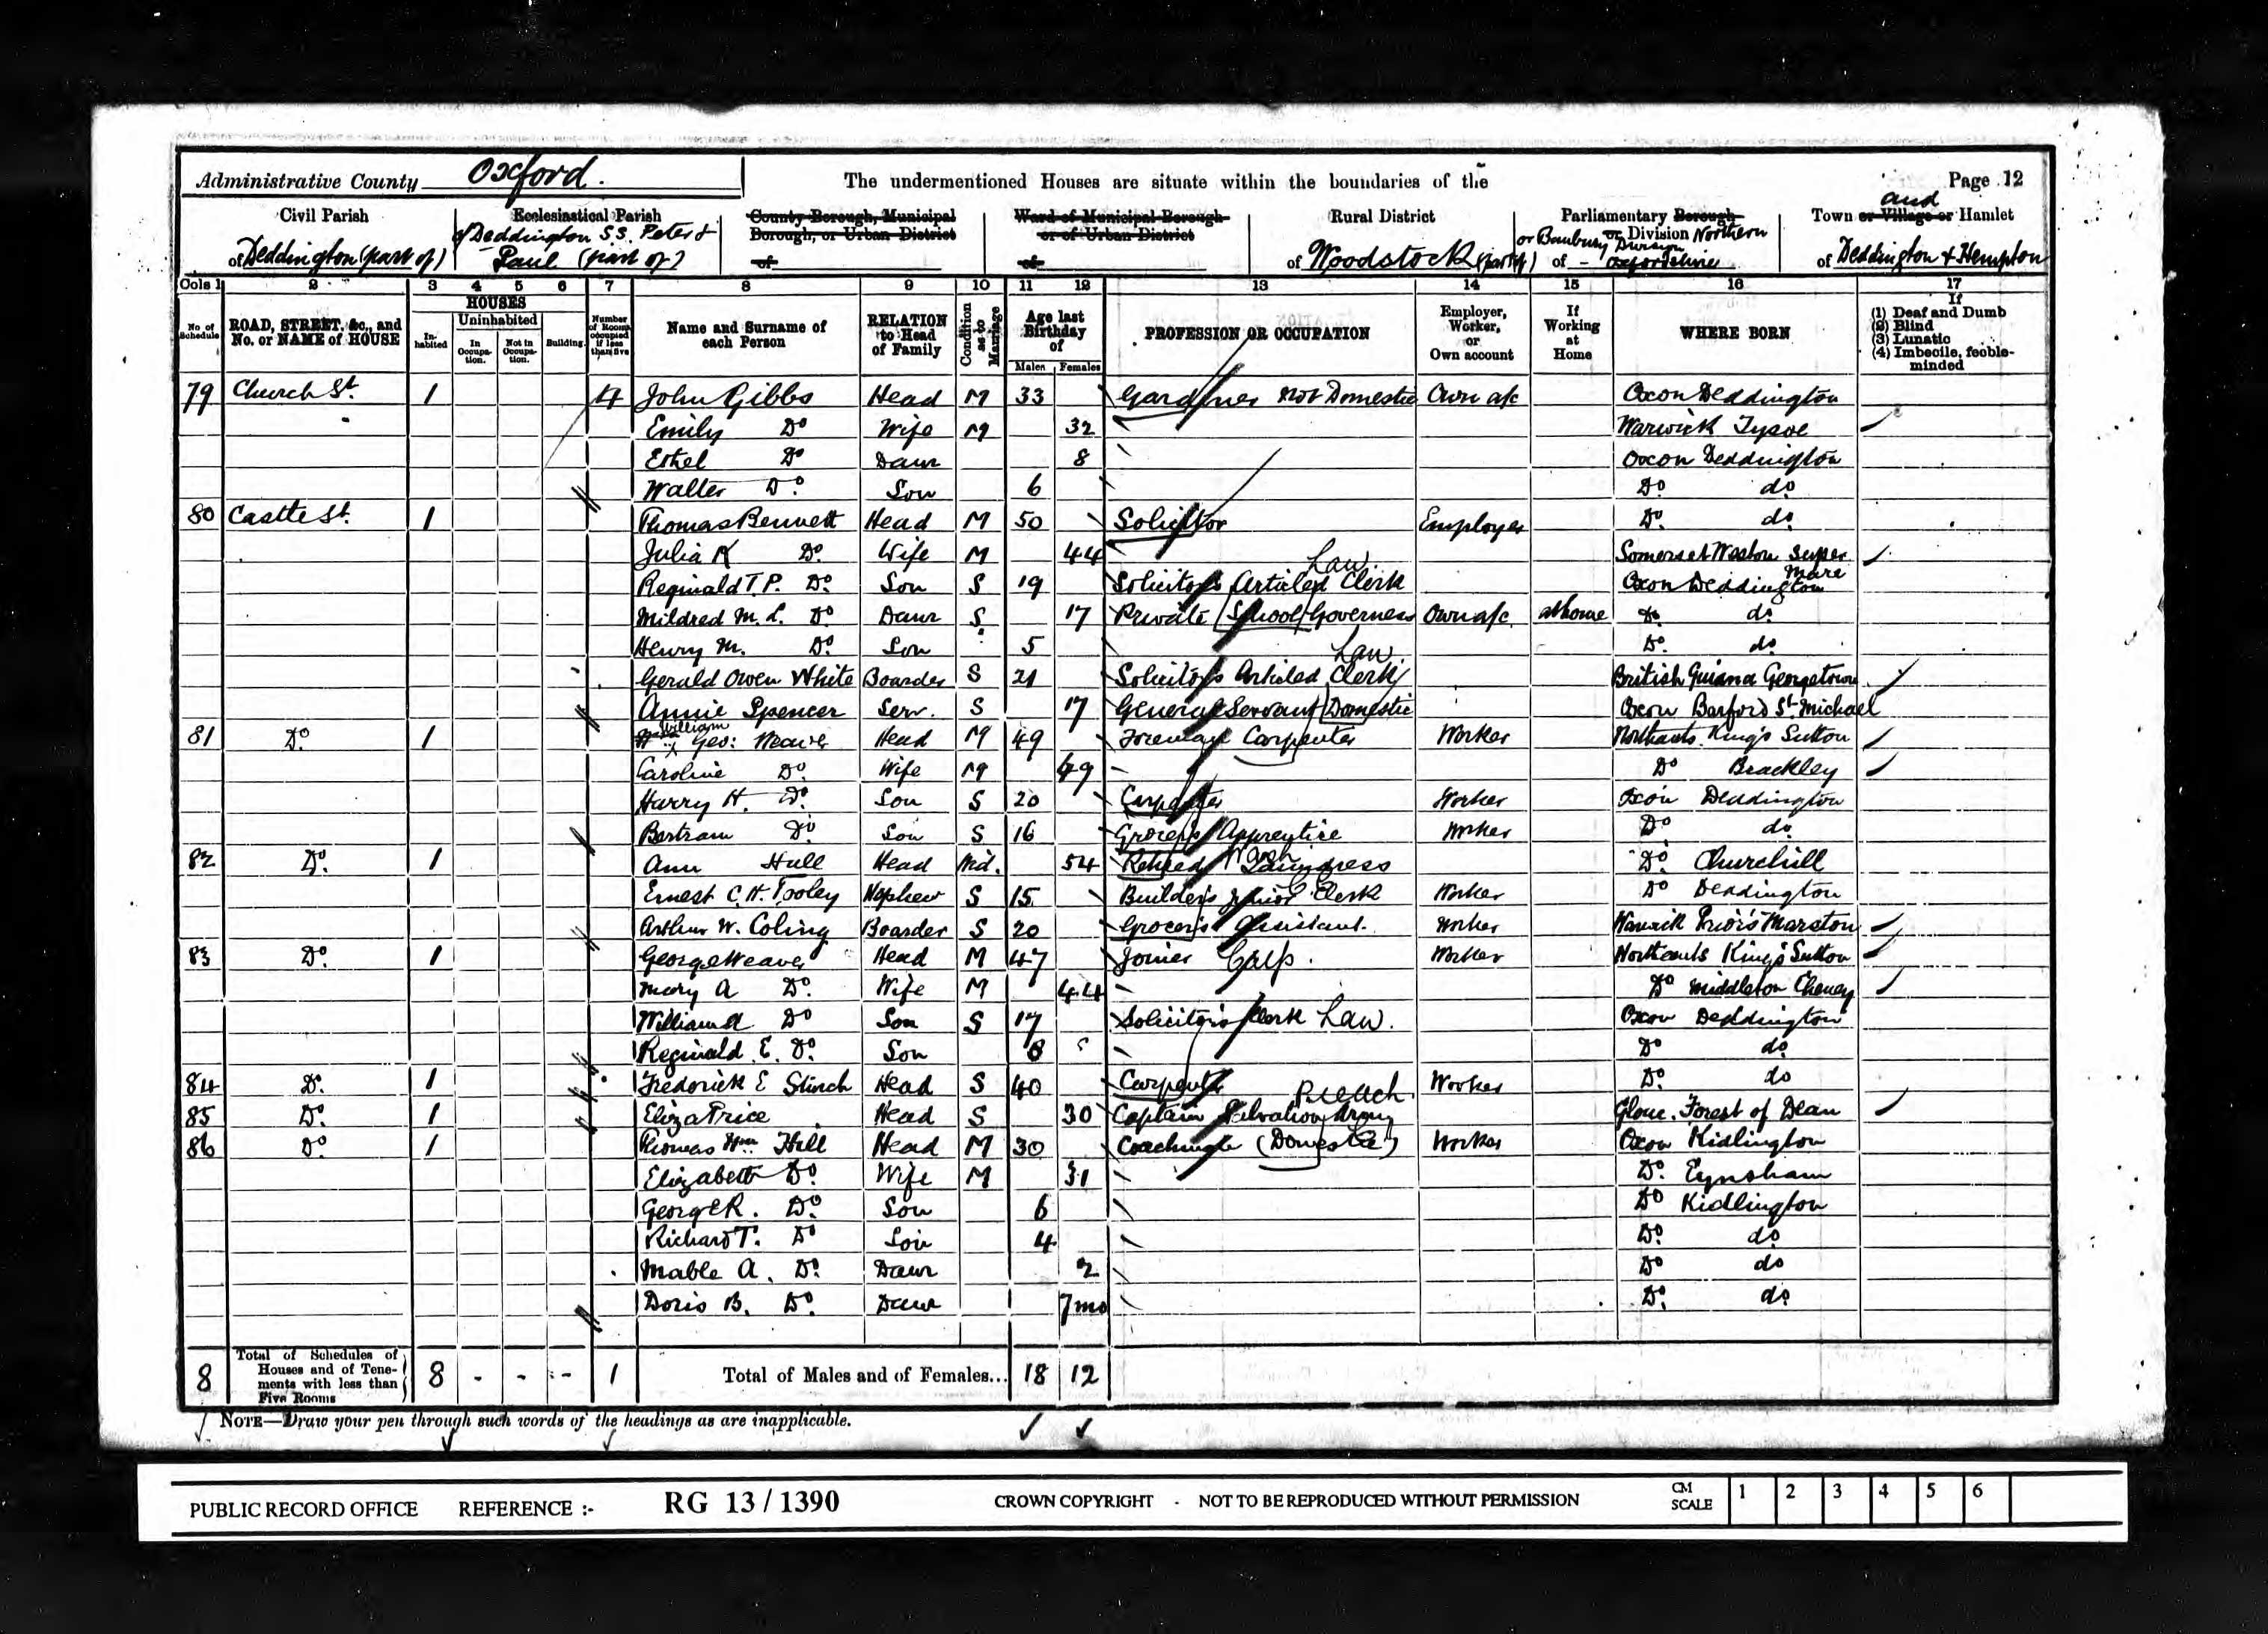 Administrative County Oxford. The undermentioned Houses are situate within the boundaries of the Page 12
Civil Parish of Deddington (part of)
Ecclesiastical Parish of Deddington S.S. Peter & Paul (part of)
County Borough, Municipal Borough, or Urban District of
Ward of Municipal Borough or of Urban District of
Rural District of Woodstock (part of)
Parliamentary Borough or Division Northern or Banbury Division of - Oxfordshire
Town or Village or Hamlet and of Deddington & Hempton
Cols 1 2 3 4 5 6 7 8 9 10 11 12 13 14 15 16 17
No. of Schedule
ROAD, STREET, &c., and No. or NAME of HOUSE
HOUSES
Inhabited
Uninhabited
In Occupation.
Not in Occupation.
Building.
Number of Rooms occupied if less than five
Name and Surname of each Person
RELATION to Head of Family
Condition as to Marriage
Age last Birthday of
Males Females
PROFESSION OR OCCUPATION
Employer, Worker, or Own account
If Working at Home
WHERE BORN
If (1) Deaf and Dumb (2) Blind (3) Lunatic (4) Imbecile, feeble-minded
79 Church St. 1 4 John Gibbs Head M 33 Gardener not Domestic Own a/c Oxon Deddington
Emily Do Wife M 32 Warwick Tysoe
Ethel Do Daur 8 Oxon Deddington
Walter Do. Son 6 Do do
80 Castle St. 1 Thomas Bennett Head M 50 Solicitor Employer Do. do
Julia K Do. Wife M 44 Somerset Weston super Mare
Reginald T. P. Do. Son S 19 Solicitor's Articled Clerk Law. Oxon Deddington
Mildred M. L. Do Daur S 17 Private School Governess Own a/c. at home Do. do.
Henry M. Do. Son 5 Do. do
Gerald Owen White Boarder S 21 Solicitor's Articled Clerk Law. British Guiana Georgetown
Annie Spencer Serv. S 17 General Servant Domestic Oxon Barford St. Michael
81 Do. 1 William Geo: Weaver Head M 49 Foreman Carpenter Worker Northants. King's Sutton
Caroline Do. Wife M 49 Do Brackley
Harry H. Do. Son S 20 Carpenter Worker Oxon Deddington
Bertram Do Son S 16 Grocer's Apprentice Worker Do. do
82 Do. 1 Ann Hull Head Wd. 54 Retired Laundress Wash Do. Churchill
Ernest C. H. Tooley Nephew S 15 Builder's Junior Clerk Worker Do Deddington
Arthur W. Coling Boarder S 20 Grocer's Assistant. Worker Warwick Prior's Marston
83 Do. 1 George Weaver Head M 47 Joiner Carp. Worker Northants King's Sutton
Mary A Do. Wife M 44 Do Middleton Cheney
William A Do Son S 17 Solicitor's Clerk Law. Oxon Deddington
Reginald. E. Do. Son 8 Do do
84 Do. 1 Frederick E Stinch Head S 40 Carpenter Worker Do. do
85 Do. 1 Eliza Price Head S 30 Captain Salvation Army Preach Glouc. Forest of Dean
86 Do 1 Thomas Wm. Hill Head M 30 Coachman (Domestic) Worker Oxon Kidlington
Elizabeth Do. Wife M 31 Do. Eynsham
George R. Do. Son 6 Do Kidlington
Richard T. Do Son 4 Do. do
Mable A. Do. Daur 2 Do do
Doris B. Do. Daur 7mo Do. do
8 Total of Schedules of Houses and of Tenements with less than Five Rooms 8 - - - 1 Total of Males and of Females... 18 12
NOTE—Draw your pen through such words of the headings as are inapplicable.
PUBLIC RECORD OFFICE REFERENCE :- RG 13 / 1390 CROWN COPYRIGHT - NOT TO BE REPRODUCED WITHOUT PERMISSION CM SCALE 1 2 3 4 5 6